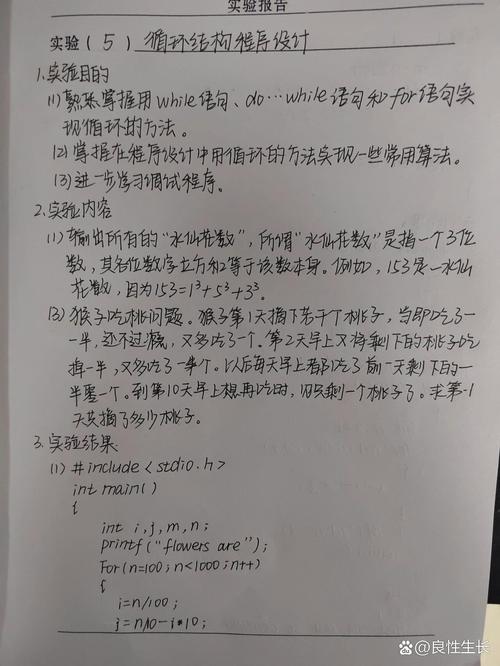 实验报告
实验(5) 循环结构程序设计
1.实验目的
(1)熟练掌握用while语句、do…while语句和for语句实
现循环的方法。
(2)掌握在程序设计中用循环的方法实现一些常用算法。
(3)进一步学习调试程序。
2.实验内容
(1)输出所有的“水仙花数”,所谓“水仙花数”是指一个3位
数,其各位数字立方和等于该数本身。例如,153是一水仙
花数,因为153=1³+5³+3³。
(3)猴子吃桃问题。猴子第1天摘下若干个桃子,当即吃了一
一半,还不过瘾,又多吃了一个。第2天早上又将剩下的桃子吃
掉一半,又多吃了一个。以后每天早上都吃了前一天剩下的一
半零一个。到第10天早上想再吃时,只剩一个桃子了。求第1
天共摘了多少桃子。
3.实验结果
(1) #include<stdio.h>
int main()
{
int i,j,m,n;
printf("flowers are");
For(n=100;n<1000;n++)
{
i=n/100;
j=n/10-i*10;
@良性生长